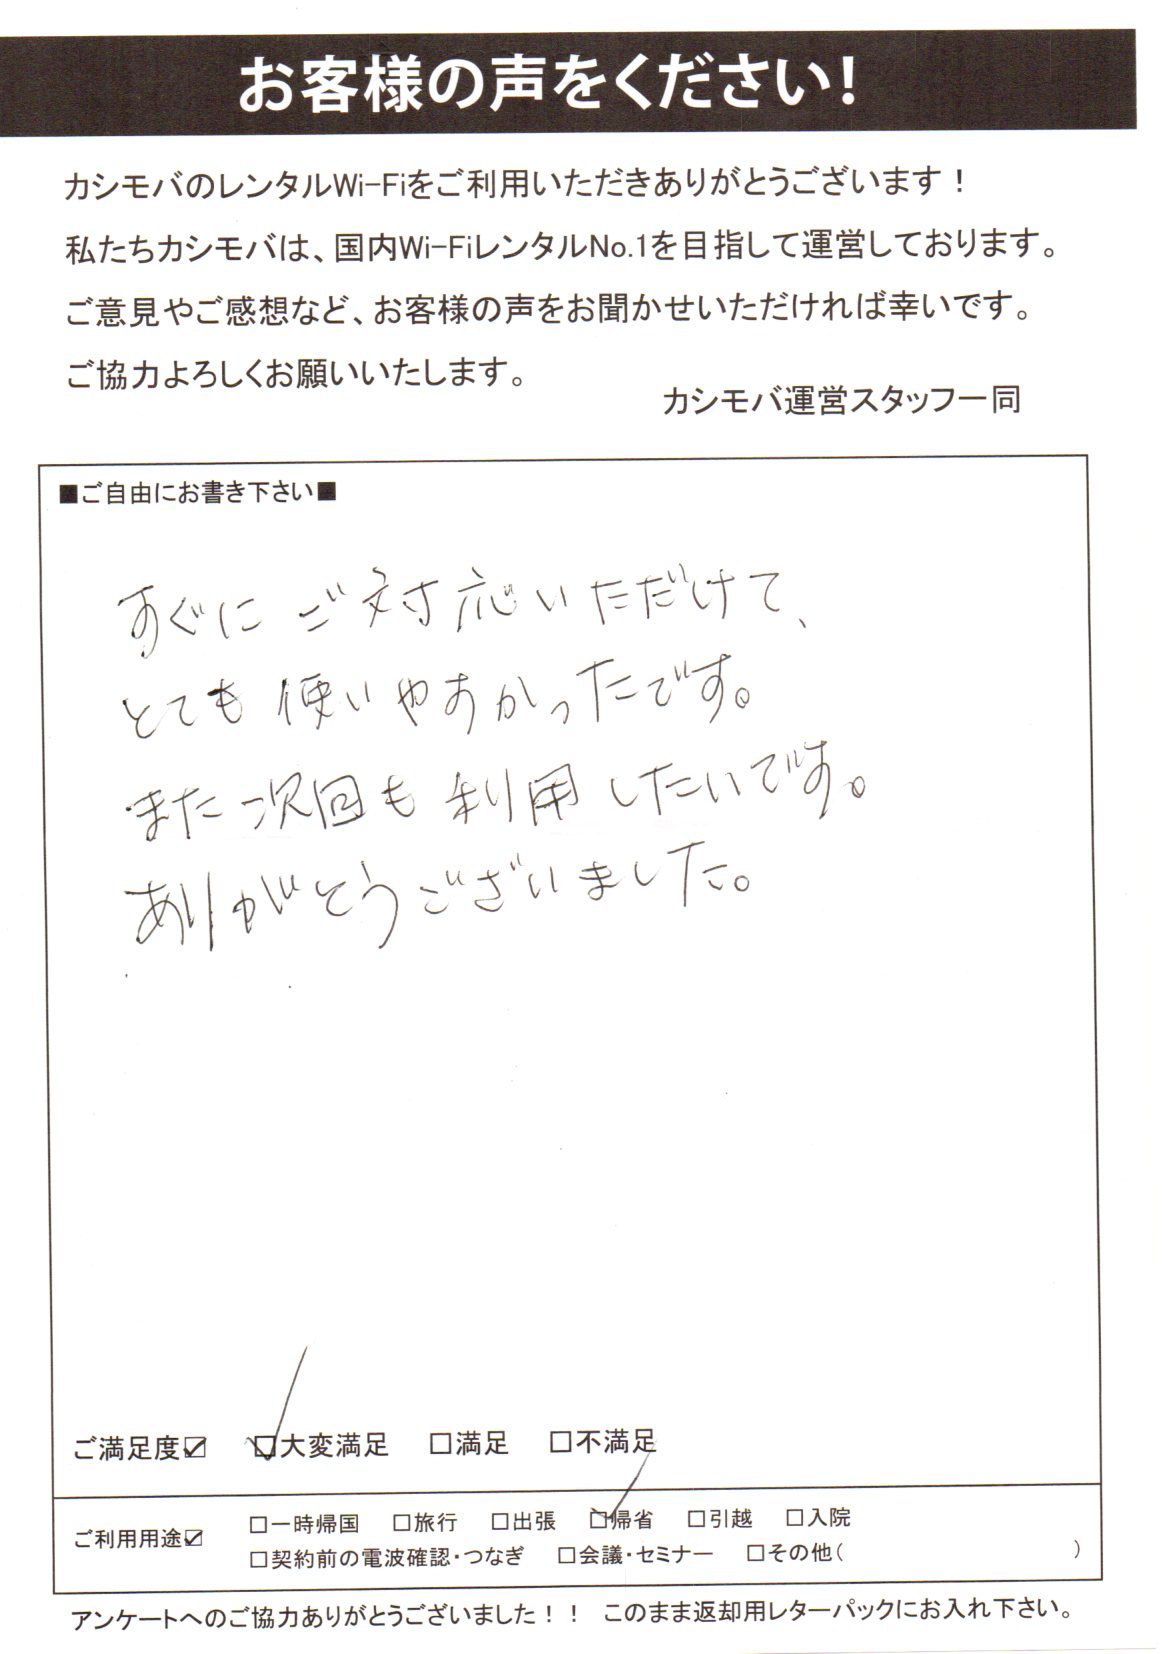 お客様の声をください!
カシモバのレンタルWi-Fiをご利用いただきありがとうございます！
私たちカシモバは、国内Wi-FiレンタルNo.1を目指して運営しております。
ご意見やご感想など、お客様の声をお聞かせいただければ幸いです。
ご協力よろしくお願いいたします。
カシモバ運営スタッフ一同
■ご自由にお書き下さい■
すぐにご対応いただけて、
とても使いやすかったです。
また次回も利用したいです。
ありがとうございました。
ご満足度☑ ☑大変満足 □満足 □不満足
ご利用用途☑ □一時帰国 □旅行 □出張 ☑帰省 □引越 □入院
□契約前の電波確認・つなぎ □会議・セミナー □その他( )
アンケートへのご協力ありがとうございました！！ このまま返却用レターパックにお入れ下さい。